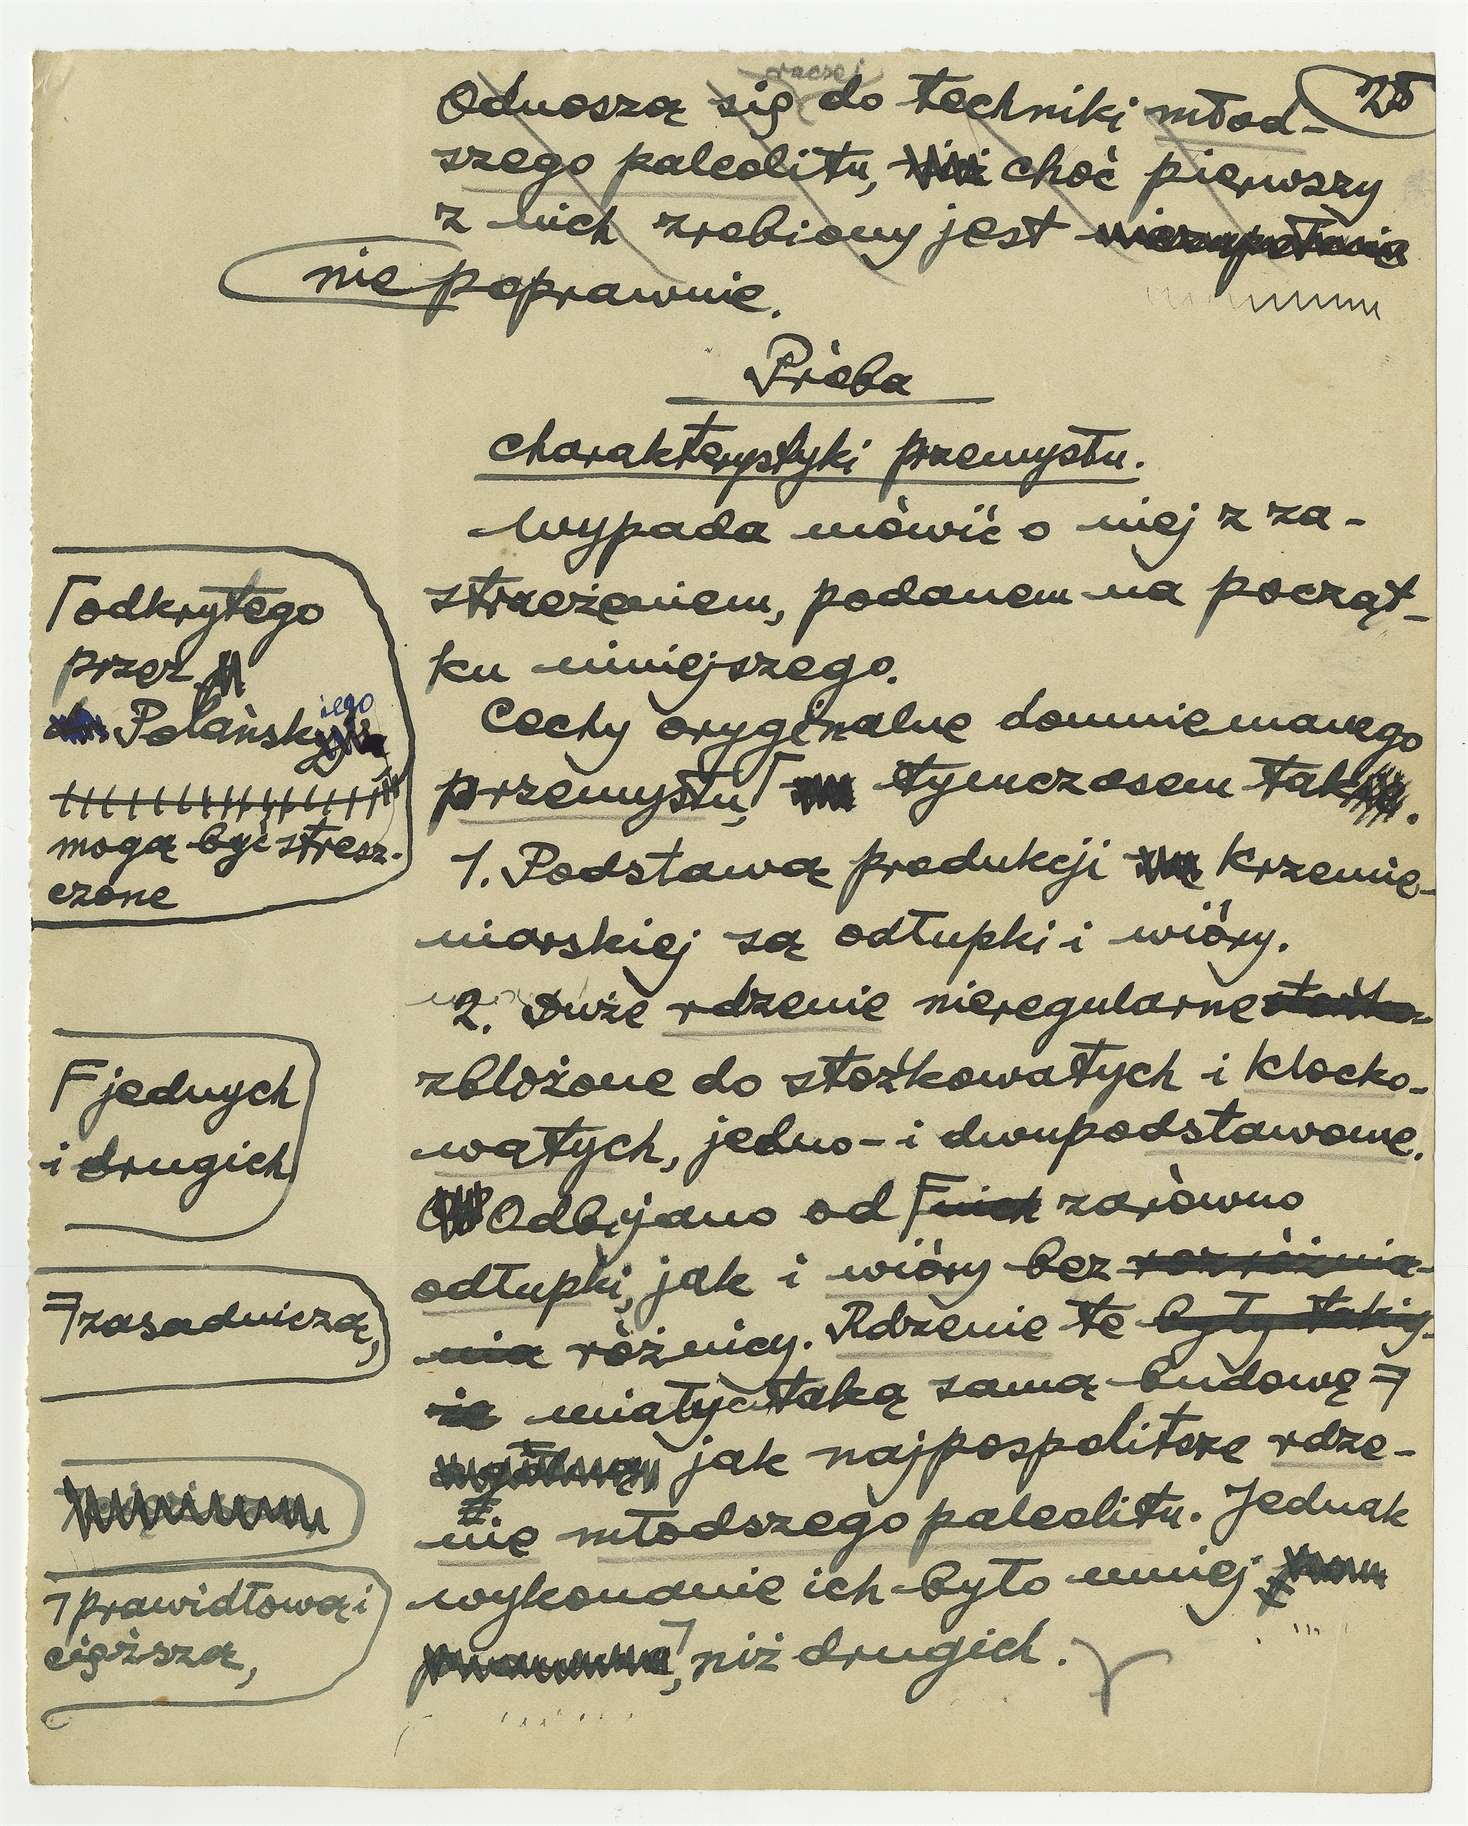 raczej
odnoszą się do techniki młod-
szego paleolitu, choć pierwszy
z nich zrobiony jest
nie poprawnie.
Próba
charakterystyki przemysłu.
Wypada mówić o niej z za-
strzeżeniem, podanem na począt-
ku niniejszego.
Cechy oryginalne domniemanego
przemysłu,⌈ tymczasem tak.
1. Podstawą produkcji krzemie-
niarskiej są odłupki i wióry.
2. Duże rdzenie nieregularne
zbliżone do stożkowatych i klocko-
watych, jedno- i dwupodstawowe.
Odbijano od F nich zarówno
odłupki, jak i wióry bez rozróżnia-
nia różnicy. Rdzenie te były takiy-
że miały taką samą budowę
jak najpospolitsze rdze-
nie młodszego paleolitu. Jednak
wykonanie ich było mniej
⌉, niż drugich.
⌈odkrytego
przez
Polańskiego
mogą być stresz-
czone
F jednych
i drugich
zasadniczą,
⌉prawidłową i
cięższą,